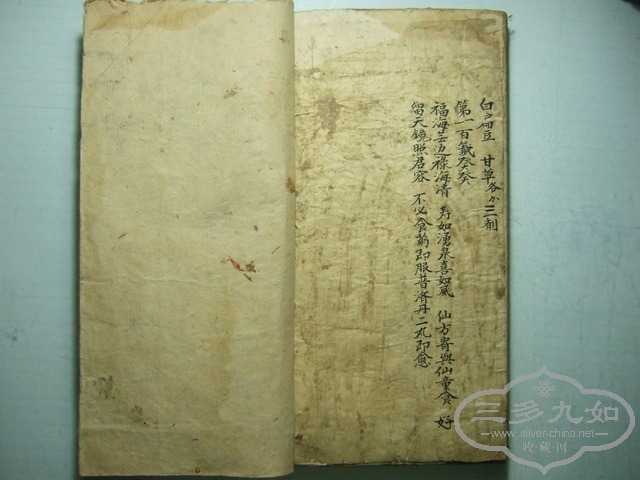 白扁豆 甘草各分三劑
第一百籤癸癸
福海无边祿海清 寿如湧泉喜如風 仙方寄與仙童食 好
留天鏡照君容 不必食药即服普濟丹二丸即愈
三多九如
www.silver-china.net
收·藏·网